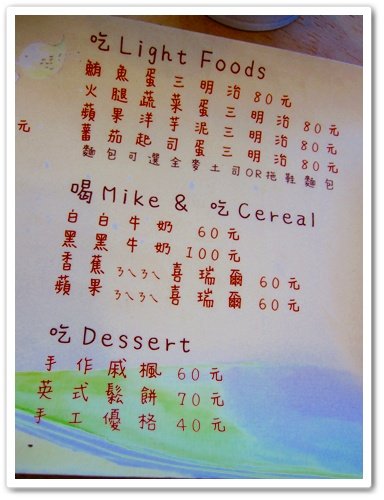 吃 Light Foods
鮪魚蛋三明治 80元
火腿蔬菜蛋三明治 80元
蘋果洋芋泥三明治 80元
蕃茄起司蛋三明治 80元
麵包可選全麥土司OR拖鞋麵包
元
喝 Mike & 吃 Cereal
白白牛奶 60元
黑黑牛奶 100元
香蕉ㄋㄟㄋㄟ喜瑞爾 60元
蘋果ㄋㄟㄋㄟ喜瑞爾 60元
吃 Dessert
手作戚楓 60元
英式鬆餅 70元
手工優格 40元